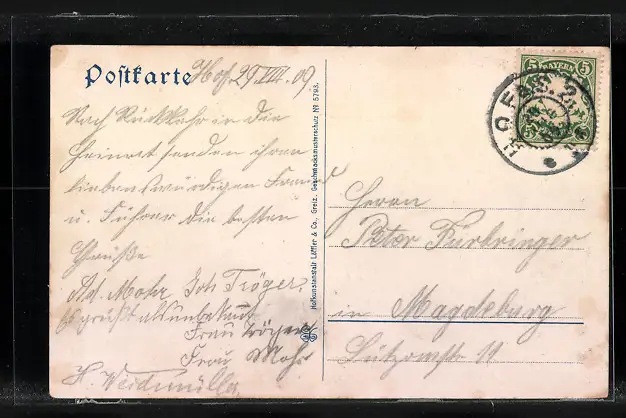 Postkarte
Hof, 29. VIII. 09
Nach Rückkehr in die
Heimat senden ihrem
liebenswürdigen Freund
u. Führer die besten
Grüße
Ad. Mohr Joh Tröger
Es grüßt als unbekannt
Frau Tröger
Frau Mohr
H. Weidmüller
Hofkunstanstalt Löffler & Co., Greiz. Geschmacksmusterschutz № 5793.
5 BAYERN 5
HOF
Herrn
Peter Fürbringer
in Magdeburg
Lützowstr 11